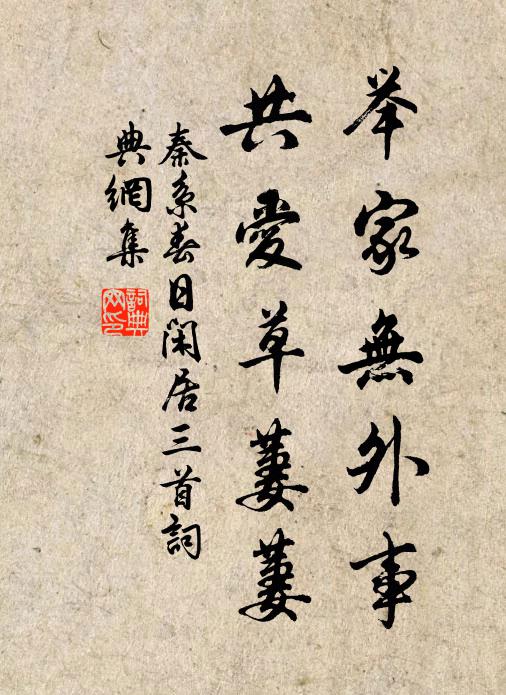 举家無外事
共愛草萋萋
秦系春日閑居三首詞
典網集
詞典网印